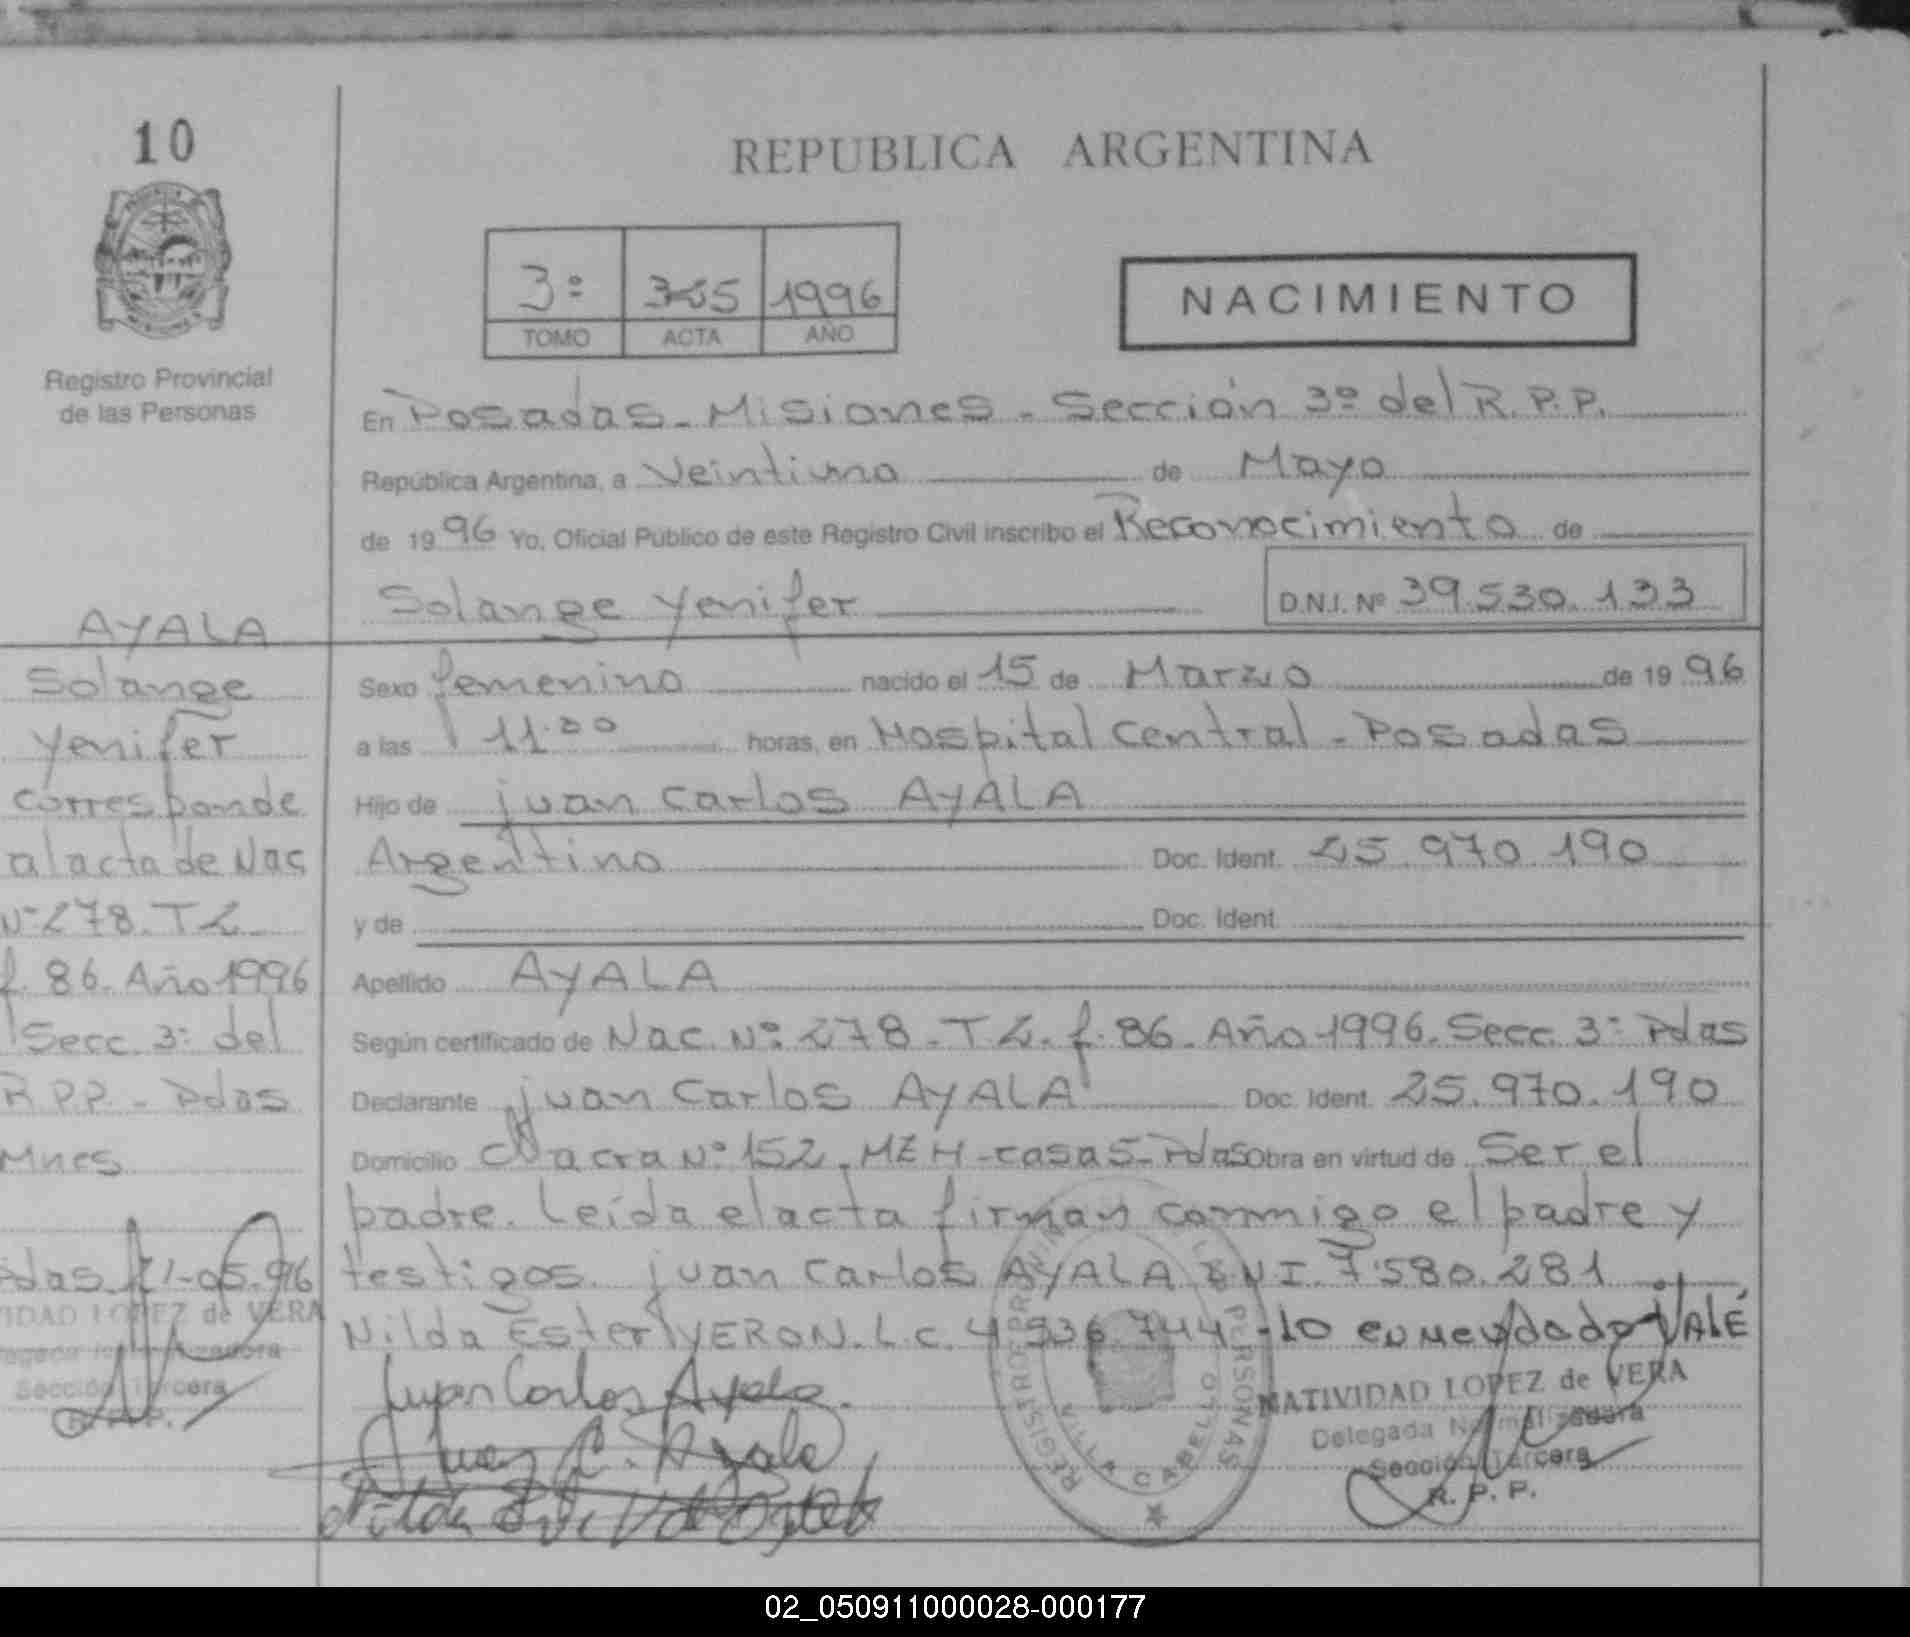 10
REPUBLICA ARGENTINA
3º 325 1996
TOMO ACTA AÑO
NACIMIENTO
Registro Provincial
de las Personas
En Posadas - Misiones - Sección 3º del R.P.P.
República Argentina, a Veintiuno de Mayo
de 1996 Yo, Oficial Público de este Registro Civil inscribo el Reconocimiento de
Solange Yenifer D.N.I. Nº 39.530.133
AYALA
Solange
Yenifer
corresponde
al acta de Nac
Nº 278. T2
f. 86. Año 1996
Secc. 3º del
R.P.P. - Pdas
Mnes
Pdas 21-05-96
VIDAD LOPEZ de VERA
Sección Tercera
R. P. P.
Sexo femenino nacido el 15 de Marzo de 1996
a las 11.00 horas, en Hospital Central - Posadas
Hijo de Juan Carlos AYALA
Argentino Doc. Ident. 25.970.190
y de Doc. Ident.
Apellido AYALA
Según certificado de Nac. Nº 278 - T2. f. 86. Año 1996. Secc. 3º Pdas
Declarante Juan Carlos AYALA Doc. Ident. 25.970.190
Domicilio Chacra Nº 152. MZ H - casa 5 - Pdas Obra en virtud de Ser el
padre. Leída el acta firman conmigo el padre y
testigos. Juan Carlos AYALA DNI. 7.580.281
Nilda Ester VERON. L.C. 4.936.744 - LO enmendado VALE
Juan Carlos Ayala.
Juan C. Ayala
REGISTRO PROVINCIAL DE LAS PERSONAS
VILLA CABELLO
NATIVIDAD LOPEZ de VERA
Delegada Normalizadora
Sección Tercera
R. P. P.
02_050911000028-000177